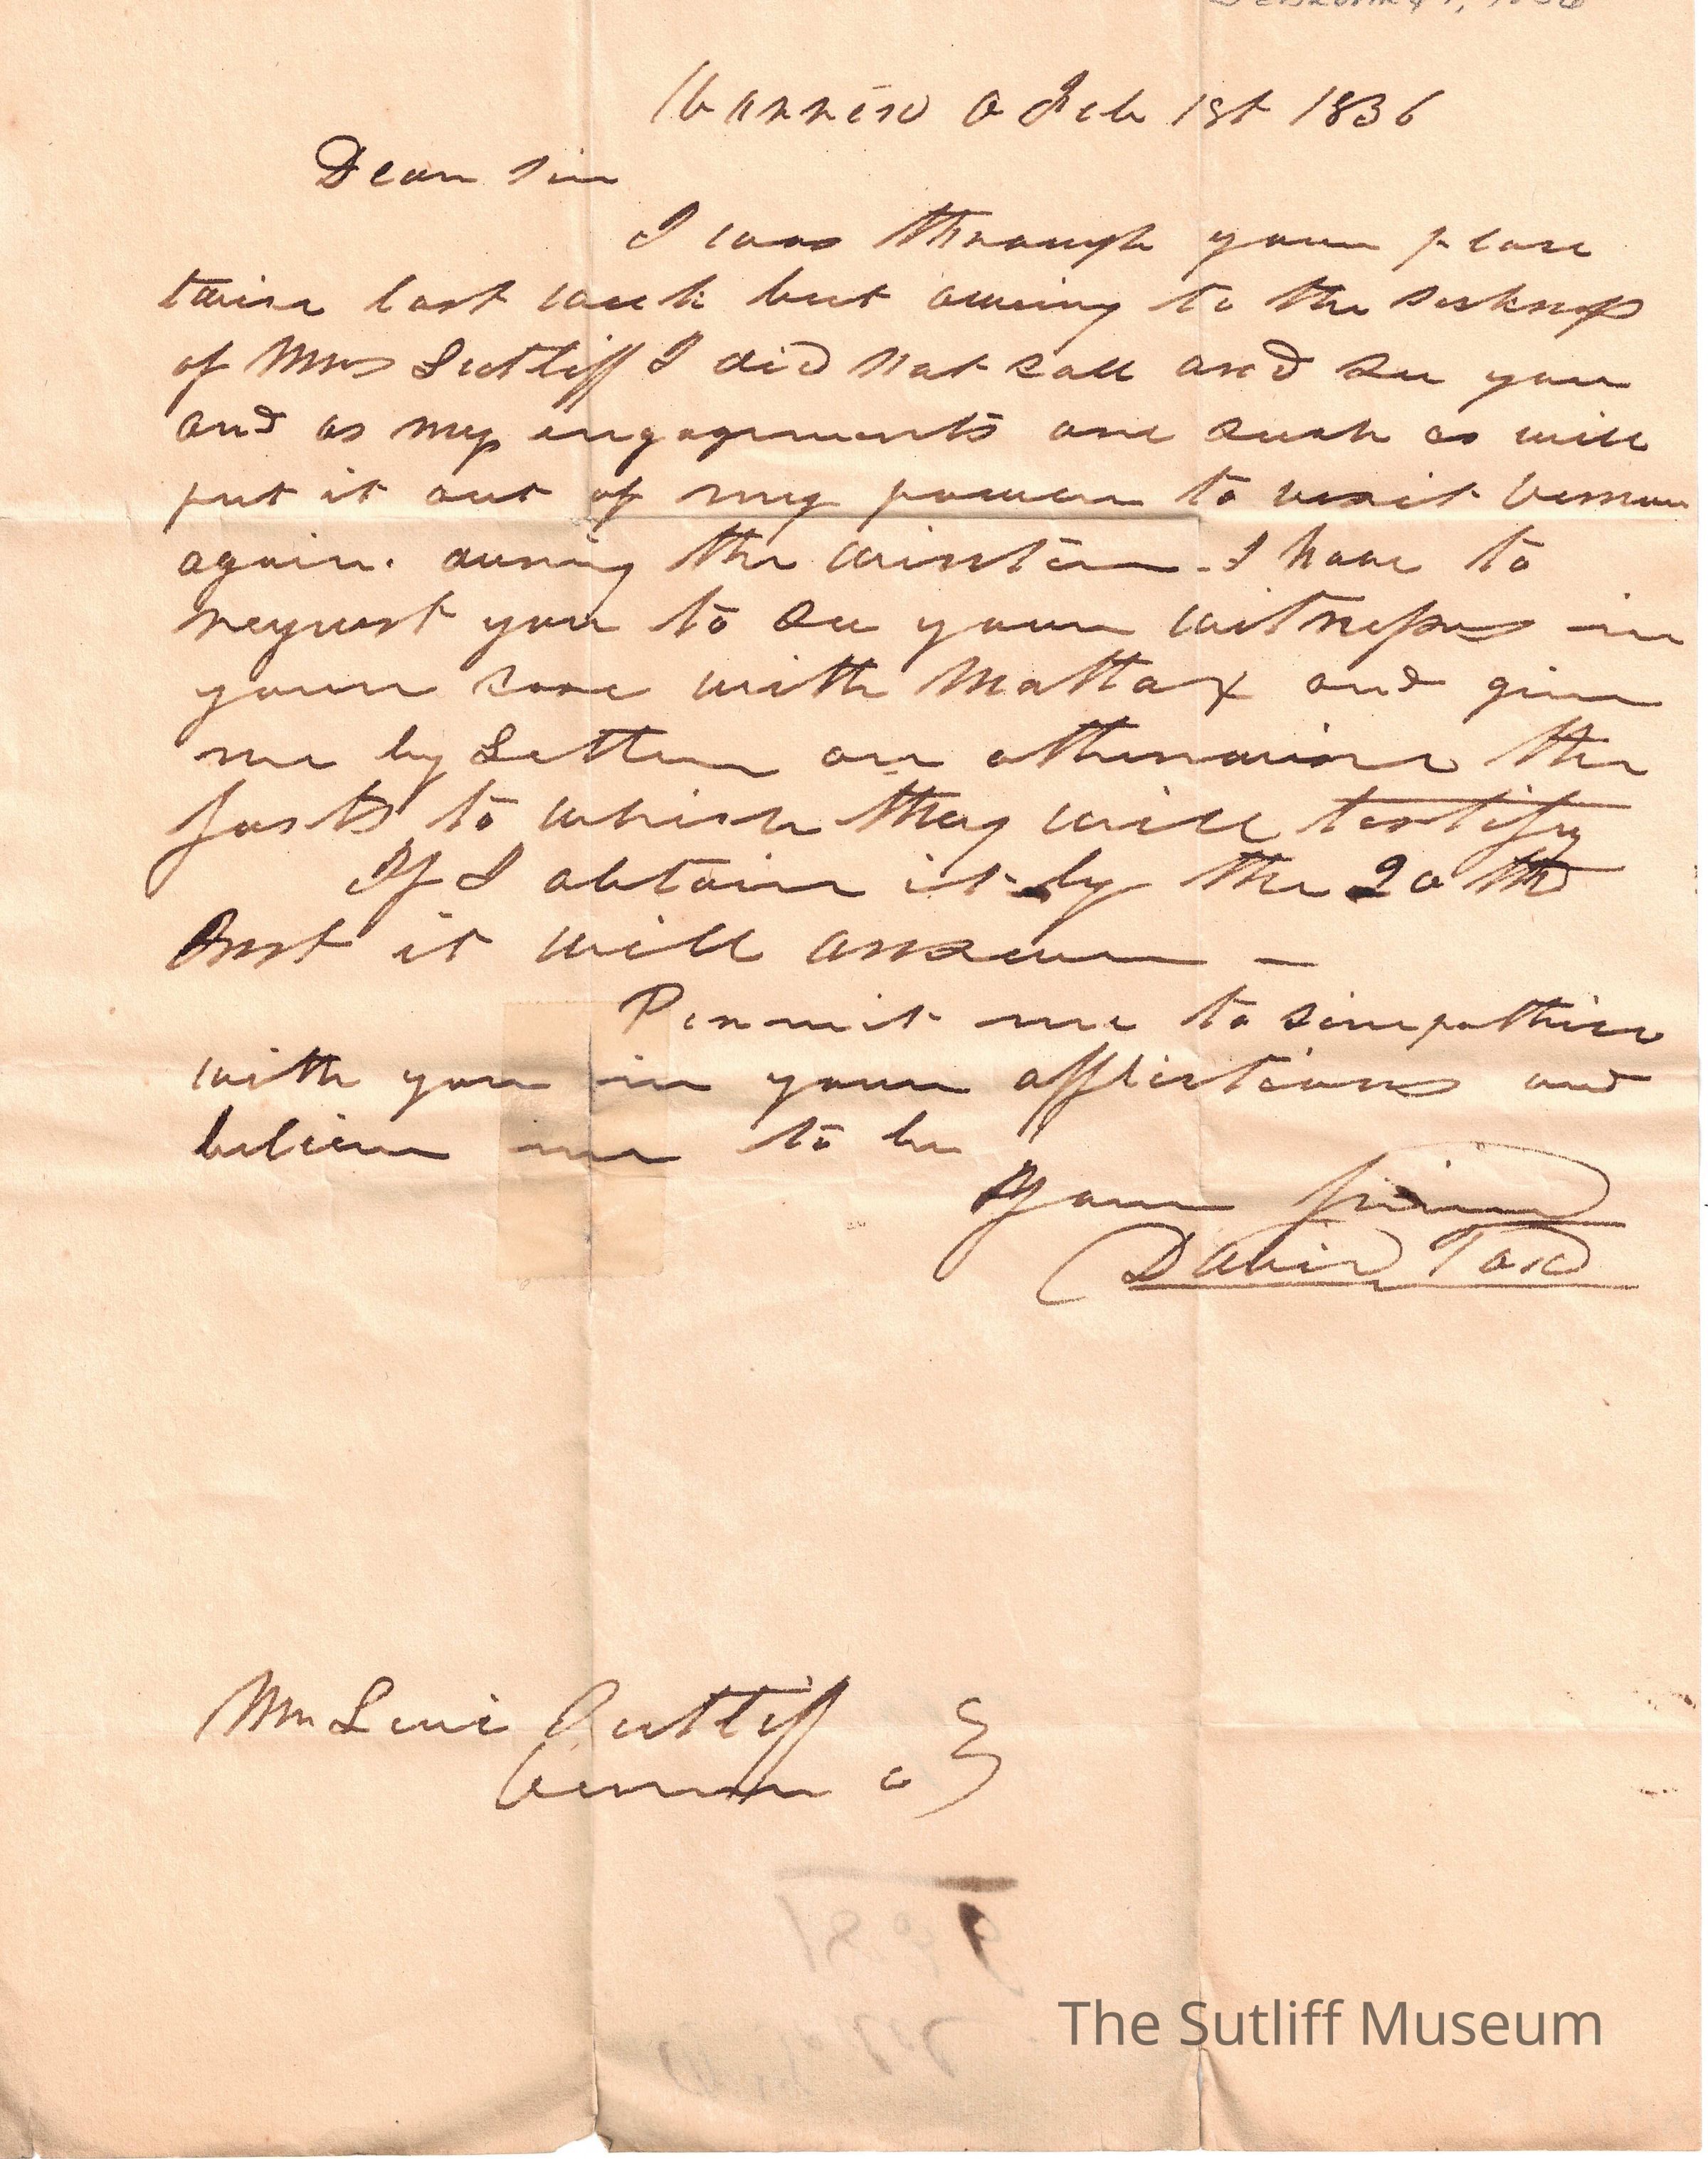 February 1, 1836
Warren O Feb 1st 1836
Dear Sir
I was through your place
twice last week but owing to the sickness
of Mrs Sutliff I did not call and see you
and as my engagements are such as will
put it out of my power to visit Vernon
again during the winter - I have to
request you to see your witnesses in
your case with Mattox and give
me by Letter or otherwise the
facts to which they will testify
If I obtain it by the 20th
Inst it will answer -
Permit me to simpathise
with you in your afflictions and
believe me to be
Your friend
David Tod
Mr Levi Sutliff
Vernon O
The Sutliff Museum